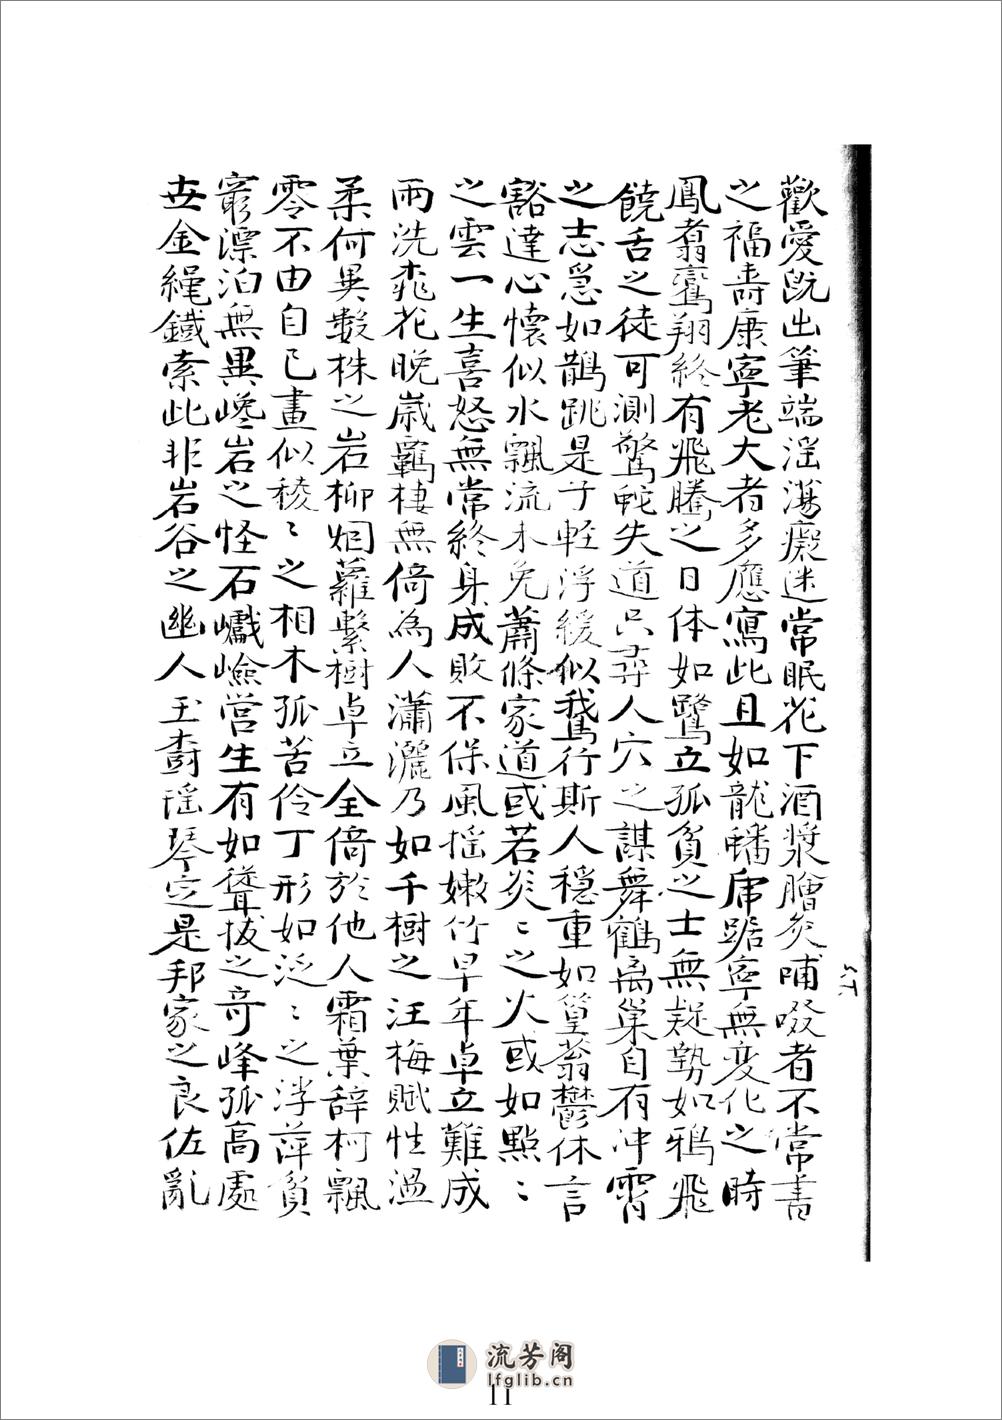 歡愛既出筆端淫蕩癡迷常眠花下酒漿膾炙餔啜者不常書
之福壽康寧老大者多應寫此且如龍蟠虎踞寧無変化之時
鳳翥鸞翔終有飛騰之日体如鷺立孤貧之士無疑勢如鴉飛
饒舌之徒可測驚蛇失道只弄人穴之謀舞鶴离巢自有沖霄
之志急如鵲跳是子軽浮緩似鵞行斯人穩重如篁蓊鬱休言
豁達心懷似水飄流未免蕭條家道或若炎〻之火或如點〻
之雲一生喜怒無常終身成敗不保風摇嫩竹早年卓立難成
雨洗桃花晚歲羈棲無倚為人瀟灑乃如千樹之江梅賦性温
柔何異數株之岩柳烟蘿繫樹卓立全倚於他人霜葉辞柯飄
零不由自己畫似稜〻之相木孤苦伶丁形如泛〻之浮萍貧
窮漂泊無異巉岩之怪石巇嶮営生有如聳拔之竒峰孤高處
世金繩鐵索此非岩谷之幽人玉樹瑶琴定是邦家之良佐亂
流芳阁
lfglib.cn
11